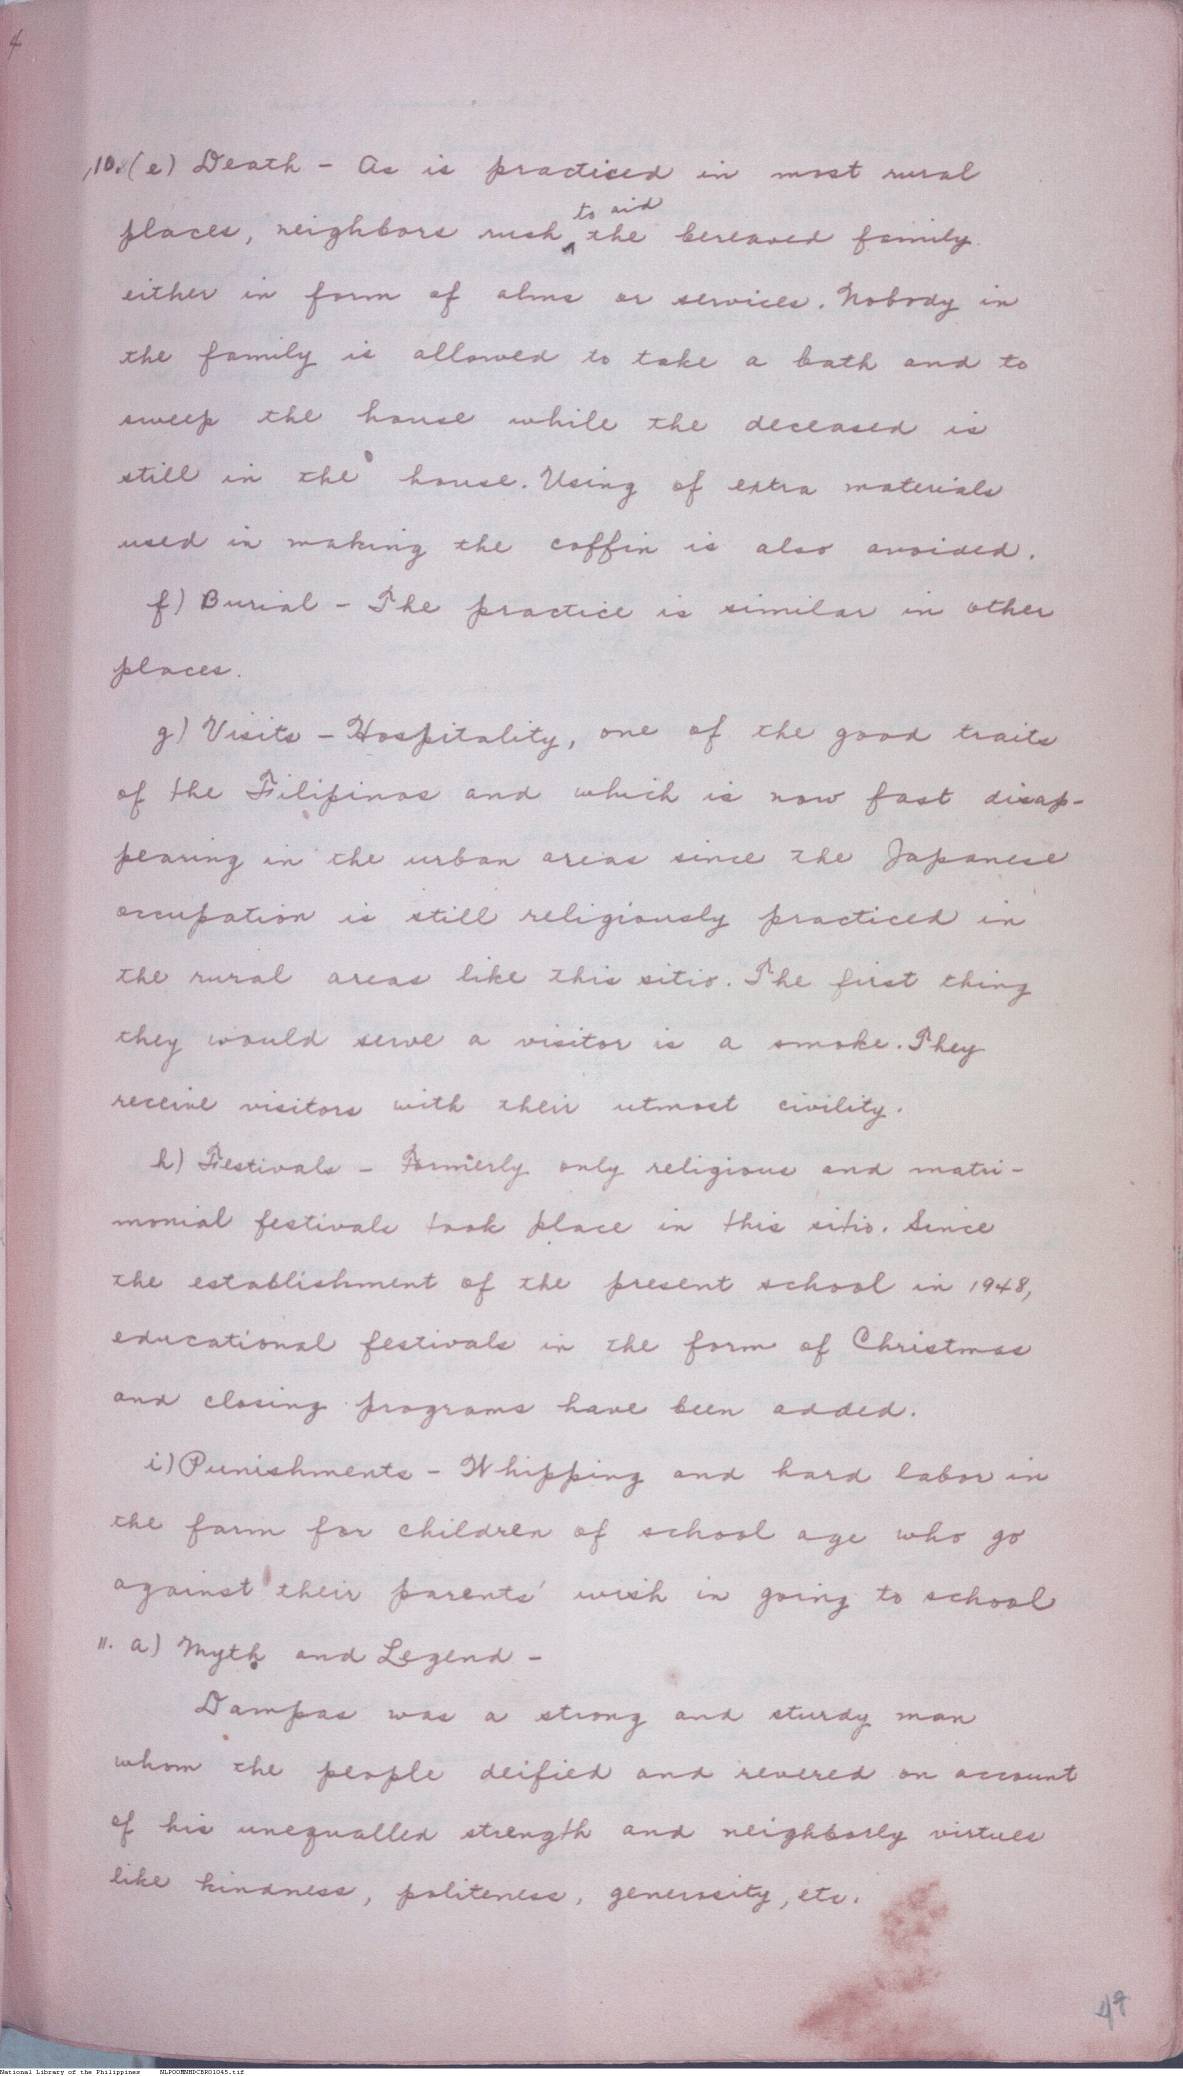 4
10. (e) Death - As is practiced in most rural
to aid
places, neighbors rush ^ the bereaved family
either in form of alms or services. Nobody in
the family is allowed to take a bath and to
sweep the house while the deceased is
still in the house. Using of extra materials
used in making the coffin is also avoided.
f) Burial - The practice is similar in other
places.
g) Visits - Hospitality, one of the good traits
of the Filipinos and which is now fast disap-
pearing in the urban areas since the Japanese
occupation is still religiously practiced in
the rural areas like this sitio. The first thing
they would serve a visitor is a smoke. They
receive visitors with their utmost civility.
h) Festivals - Formerly only religious and matri-
monial festivals took place in this sitio. Since
the establishment of the present school in 1948,
educational festivals in the form of Christmas
and closing programs have been added.
i) Punishments - Whipping and hard labor in
the farm for children of school age who go
against their parents' wish in going to school
11. a) Myth and Legend -
Dampas was a strong and sturdy man
whom the people deified and revered on account
of his unequalled strength and neighborly virtues
like kindness, politeness, generosity, etc.
49
National Library of the Philippines NLPOOMNHDCBR01045.tif